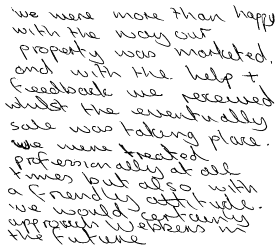 we were more than happy
with the way our
property was marketed.
and with the help +
feedback we received
whilst the eventually
sale was taking place.
we were treated
professionally at all
times but also with
a friendly attitude.
we would certainly
approach Webbers in
the future